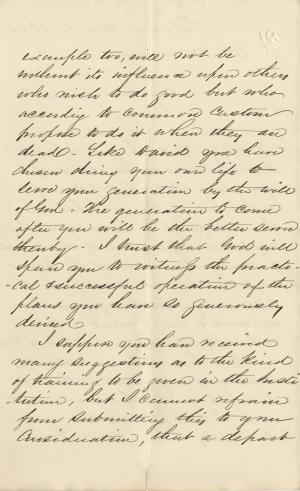 example too, will not be
without its influence upon others
who wish to do good but who
according to common custom
propose to do it when they are
dead. Like David you have
chosen during your own life to
serve your generation by the will
of God. The generation to come
after you will be the better served
thereby. I trust that God will
spare you to witness the practi-
cal & successful operation of the
plans you have so generously
devised
I suppose you have received
many suggestions as to the kind
of training to be given in the Insti-
tution, but I cannot refrain
from submitting this to your
consideration, that a depart